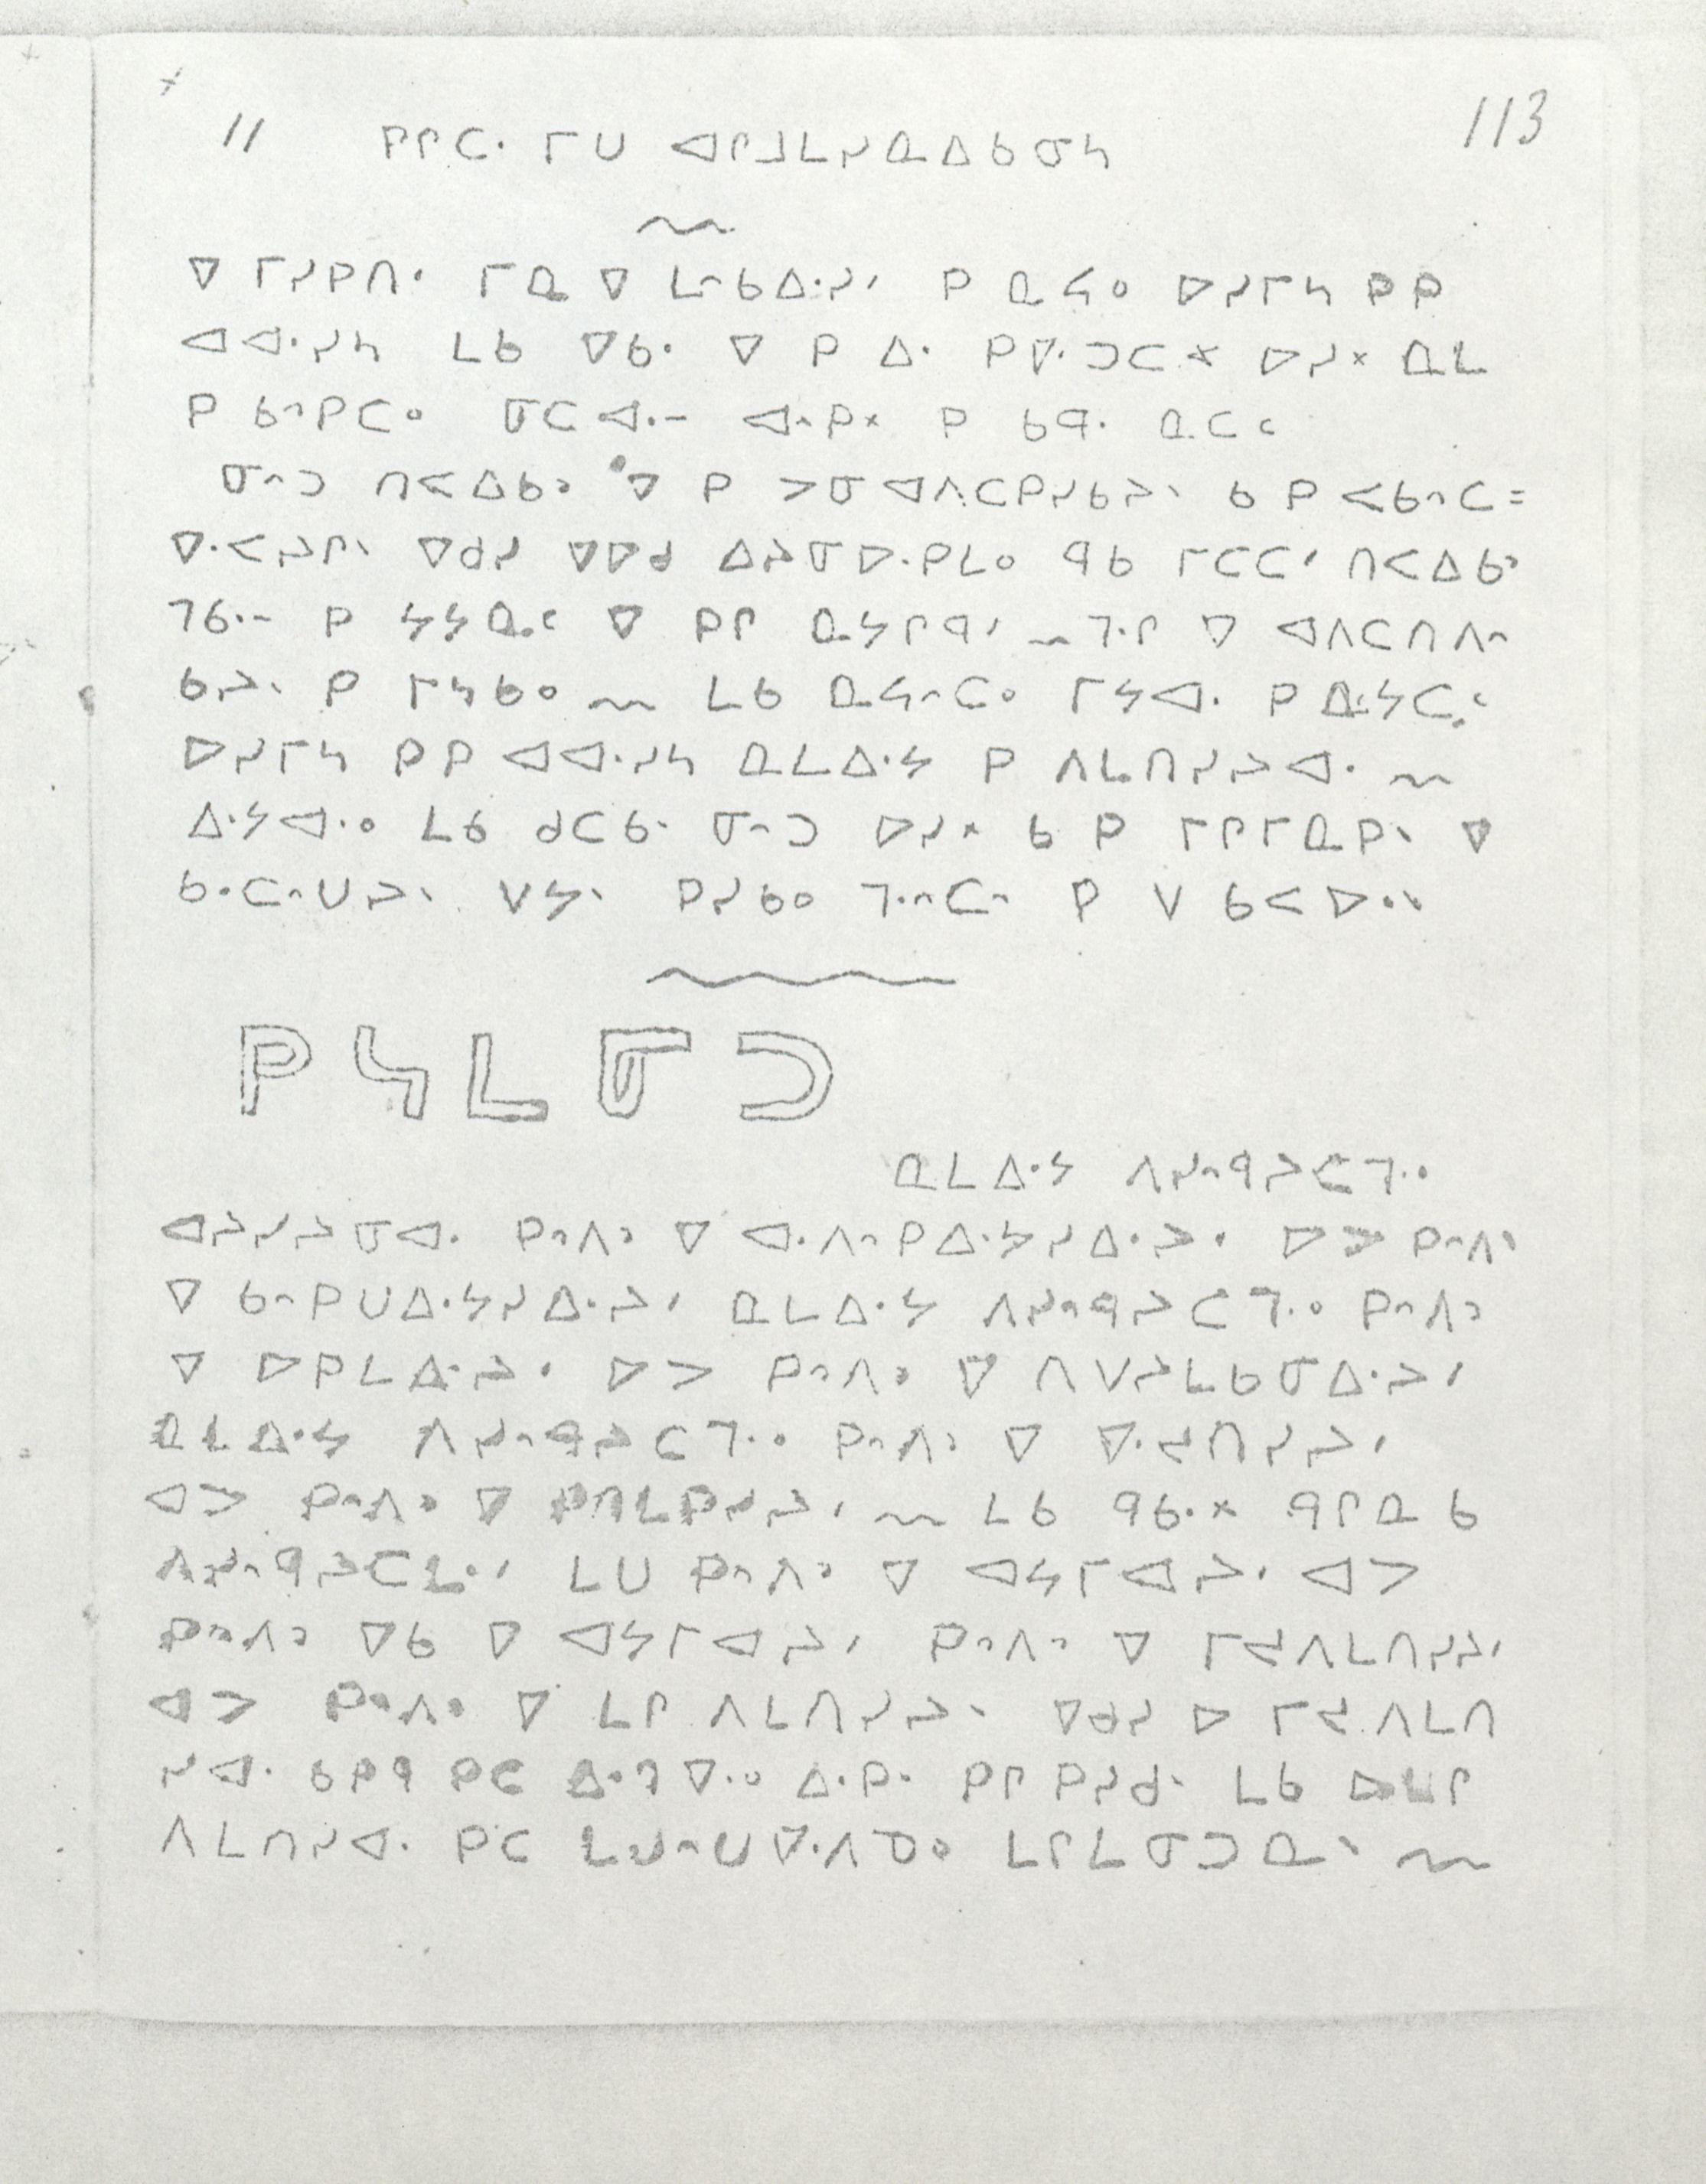 113
〃 ᑭᒋᑕᐧ ᒥᑌ ᐊᒋᒧᒪᓱᓇᐃᑲᓂᓴ
ᐁ ᒥᓯᑭᑎᐧ ᒥᓇ ᐁ ᒪᐢᑲᐃᐧᓯᐟ ᑭ ᓇᓴᐤ ᐅᓯᒥᓴ ᑭᑭ
ᐊᐊᐧᓯᓴ ᒪᑲ ᐁᑲᐧ ᐁ ᑭ ᐃᐧ ᑭᐁᐧᑐᑕᕽ ᐅᓯᕽ ᓇᒪ
ᑭ ᑲᐢᑭᑕᐤ ᓂᑕᐊᐧᐨ ᐊᐢᑭᕽ ᑭ ᑲᑫᐧ ᓇᑕᒼ
ᓂᐢᑐ ᑎᐸᐃᑲᐣ ᐁ ᑭ ᐳᓂ ᐊᐱᑕᑭᓯᑲᔨᐠ ᑲ ᑭ ᐸᑲᐢᑕ᐀
ᐁᐧᐸᔨᒋᐠ ᐁᑯᓯ ᐁᐅᑯ ᐃᔨᓂᐅᐧᑭᒪᐤ ᑫᑲ ᒥᑕᑕᐟ ᑎᐸᐃᑲᐣ
ᒣᑲᐧᐨ ᑭ ᓴᓴᓇᒼ ᐁ ᑭᒋ ᓇᓴᒋᑫᐟ ᒣᐧᒋ ᐁ ᐊᐱᑕᑎᐱᐢ
ᑲᔨᐠ ᑭ ᒥᓴᑲᐤ ᒪᑲ ᓇᓴᐢᑕᐤ ᒥᓴᐊᐧ ᑭ ᓇᓴᑕᒼ
ᐅᓯᒥᓴ ᑭᑭ ᐊᐊᐧᓯᓴ ᓇᒪᐃᐧᔭ ᑭ ᐱᒪᑎᓯᔨᐊᐧ
ᐃᐧᔭᐊᐧᐤ ᒪᑲ ᑯᑕᑲᐧ ᓂᐢᑐ ᐅᓯᕽ ᑲ ᑭ ᒥᒋᒥᓇᑭᐠ ᐁ
ᑲᐧᑕᐢᑌᔨᐠ ᐯᔭᐠ ᑭᓯᑲᐤ ᒣᐧᐢᑕᐢ ᑭ ᐯ ᑲᐸᐅᐧᐠ
ᑭᓴᒪᓂᑐ
ᓇᒪᐃᐧᔭ ᐱᓯᐢᑫᔨᑕᒣᐧᐤ
ᐊᔨᓯᔨᓂᐊᐧ ᑭᐢᐱᐣ ᐁ ᐊᐧᐱᐢᑭᐃᐧᔭᓯᐃᐧᔨᐟ ᐅᔪ ᑭᐢᐱᐣ
ᐁ ᑲᐢᑭᑌᐃᐧᔭᓯᐃᐧᔨᐟ ᓇᒪᐃᐧᔭ ᐱᓯᐢᑫᔨᑕᒣᐧᐤ ᑭᐢᐱᐣ
ᐁ ᐅᑭᒪᐃᐧᔨᐟ ᐅᐳ ᑭᐢᐱᐣ ᐁ ᑎᐯᔨᒪᑲᓂᐃᐧᔨᐟ
ᓇᒪᐃᐧᔭ ᐱᓯᐢᑫᔨᑕᒣᐧᐤ ᑭᐢᐱᐣ ᐁ ᐁᐧᔪᑎᓯᔨᐟ
ᐊᐳ ᑭᐢᐱᐣ ᐁ ᑭᑎᒪᑭᓯᔨᐟ ᒪᑲ ᑫᑲᐧᕽ ᑫᒋᓇ ᑲ
ᐱᓯᐢᑫᔨᑕᒪᐧᐟ ᒪᑌ ᑭᐢᐱᐣ ᐁ ᐊᔭᒥᐊᔨᐟ ᐊᐳ
ᑭᐢᐱᐣ ᐁᑲ ᐁ ᐊᔭᒥᐊᔨᐟ ᑭᐢᐱᐣ ᐁ ᒥᔪᐱᒪᑎᓯᔨᐟ
ᐊᐳ ᑭᐢᐱᐣ ᐁ ᒪᒋ ᐱᒪᑎᓯᔨᐠ ᐁᑯᓯ ᐅ ᒥᔪ ᐱᒪᑎ
ᓯᐊᐧ ᑲᑭᑫ ᑭᑕ ᐃᐧᒉᐁᐧᐤ ᐃᐧᑭᐧ ᑭᒋ ᑭᓯᑯᐠ ᒪᑲ ᐅᒪᒋ
ᐱᒪᑎᓯᐊᐧ ᑭᑕ ᒪᑯᐢᑌᐁᐧᐱᓀᐤ ᒪᒋᒪᓂᑐᓇᐠ